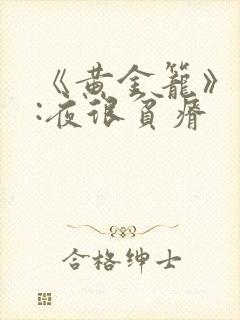 《黄金笼》
:夜很贫瘠
合格绅士